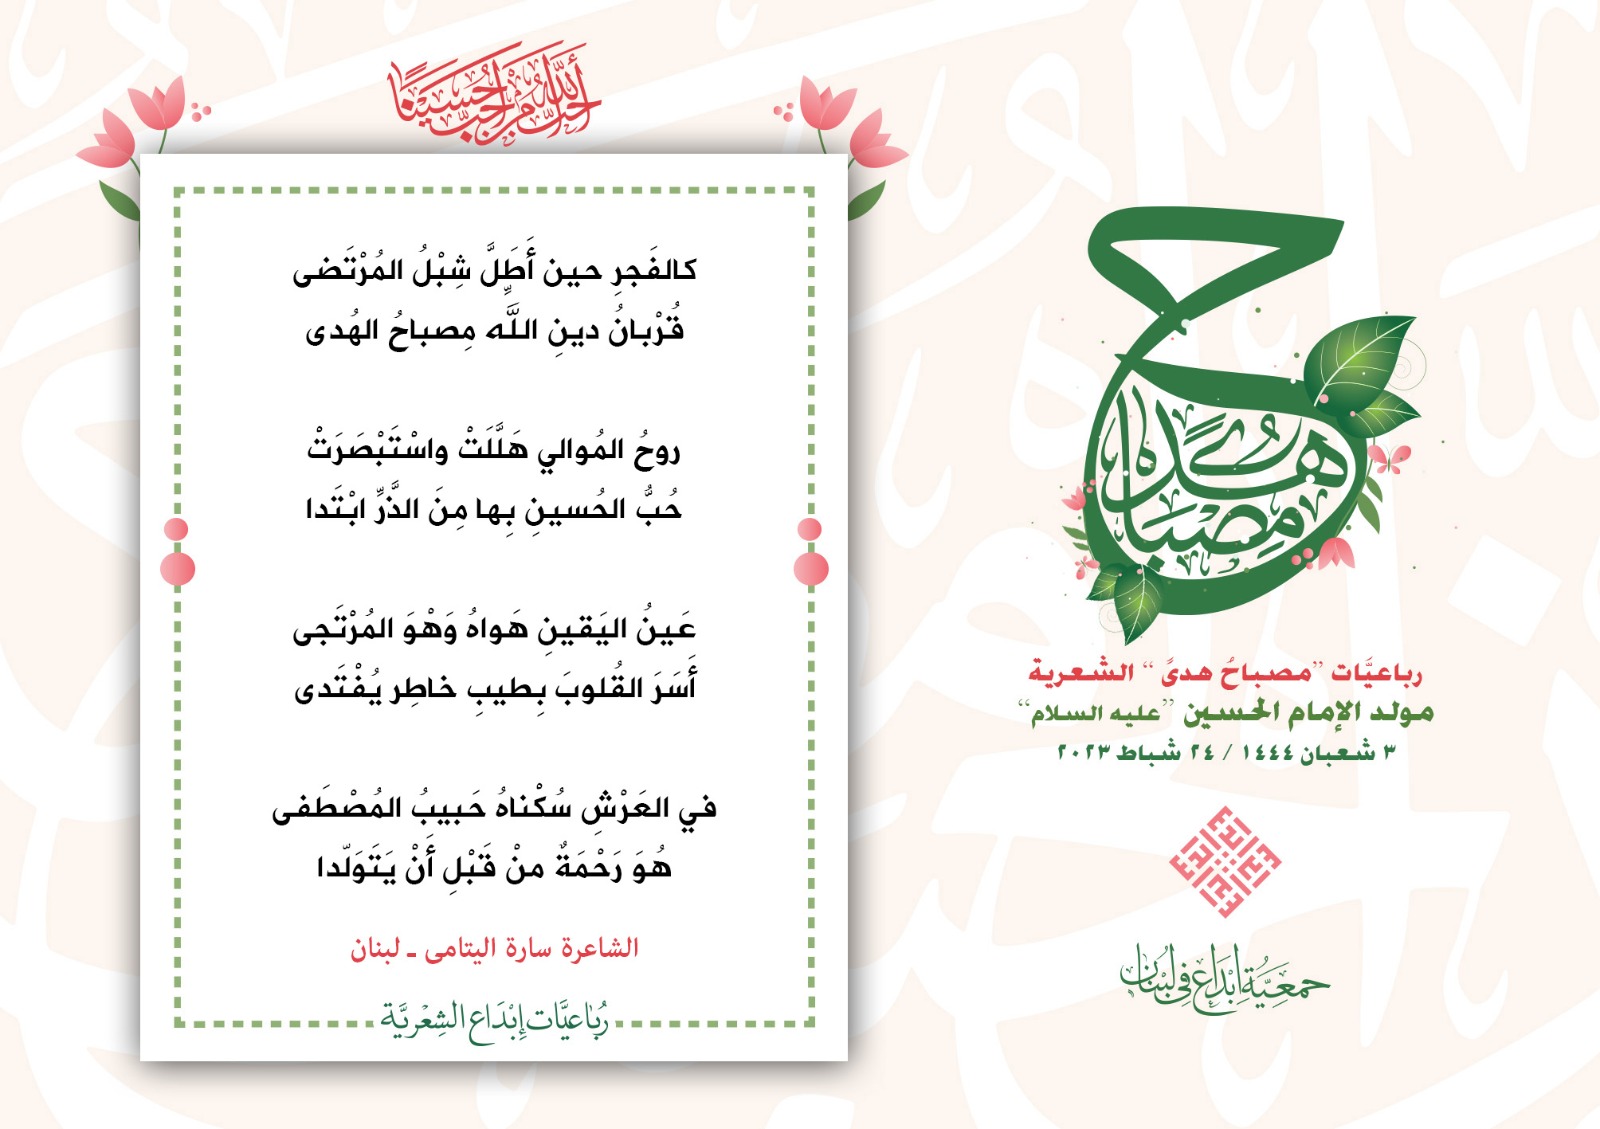 أحبَّ اللهُ مَن أحَبَّ حُسَينًا
كالفَجرِ حين أَطَلَّ شِبْلُ المُرْتَضى
قُرْبانُ دينِ اللَّهِ مِصباحُ الهُدى
روحُ المُوالي هَلَّلَتْ واسْتَبْصَرَتْ
حُبُّ الحُسينِ بِها مِنَ الذَّرِّ ابْتَدا
عَينُ اليَقينِ هَواهُ وَهْوَ المُرْتَجى
أَسَرَ القُلوبَ بِطيبِ خاطِرٍ يُفْتَدى
في العَرْشِ سُكْناهُ حَبيبُ المُصْطَفى
هُوَ رَحْمَةٌ منْ قَبْلِ أَنْ يَتَوَلّدا
الشاعرة سارة اليتامى ـ لبنان
رُبَاعيَّات إبْدَاع الشِعْريَّة
ح
مِصْبَاحُ هُدًى
رباعيَّات ”مصباحُ هدىً“ الشعرية
مولد الإمام الحسين ”عليه السلام“
٣ شعبان ١٤٤٤ / ٢٤ شباط ٢٠٢٣
إبداع
جمعيَّة إبْدَاع في لبنان